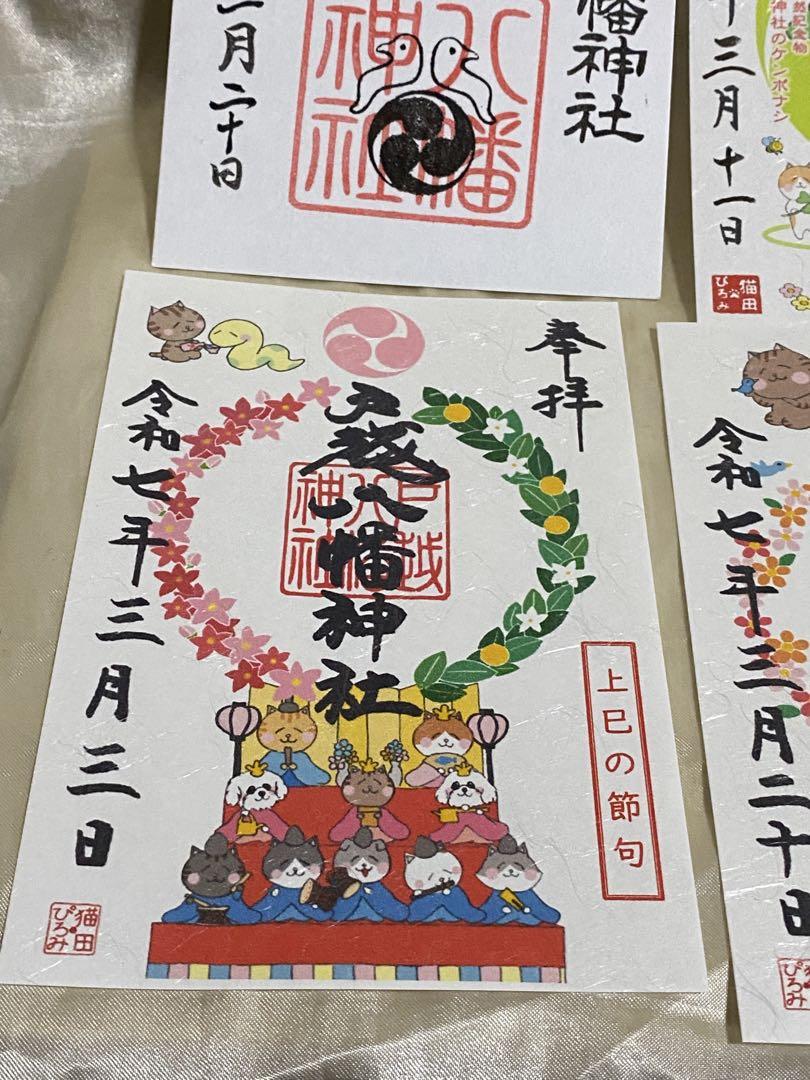 幡神社
八幡
神社
二十日
神社のケンポナシ
三月十一日
猫田
ぴろみ
奉拝
戸越八幡神社
戸越
八幡
神社
令和七年三月三日
上巳の節句
猫田
ぴろみ
令和七年三月二十日
ぴろみ